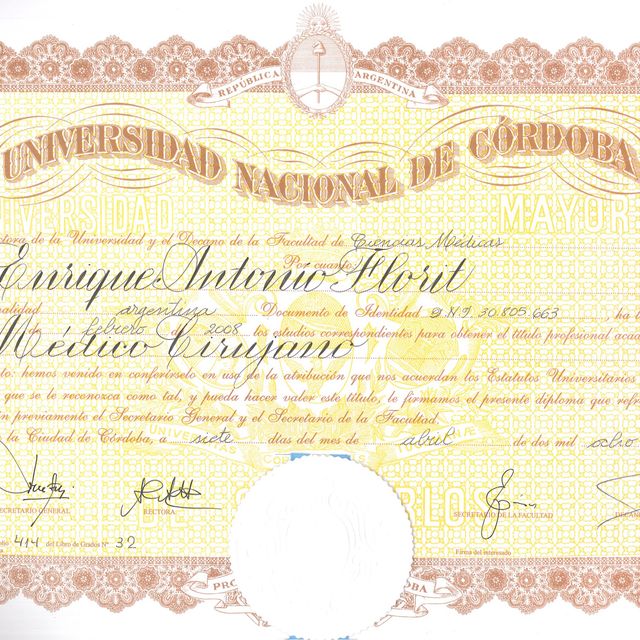 REPÚBLICA ARGENTINA
UNIVERSIDAD NACIONAL DE CÓRDOBA
UNIVERSIDAD MAYOR
ctora de la Universidad y el Decano de la Facultad de Ciencias Médicas
Por cuanto
Enrique Antonio Florit
nalidad argentina Documento de Identidad D.N.I. 30.805.663 ha
de febrero de 2008 los estudios correspondientes para obtener el título profesional
Médico Cirujano
lo: hemos venido en conferírselo en uso de la atribución que nos acuerdan los Estatutos Universitarios
que se le reconozca como tal, y pueda hacer valer este título, le firmamos el presente diploma que
previamente el Secretario General y el Secretario de la Facultad.
la Ciudad de Córdoba, a siete días del mes de abril de dos mil ocho
SECRETARIO GENERAL RECTORA SECRETARIO DE LA FACULTAD
414 del Libro de Grados N° 32 Firma del interesado